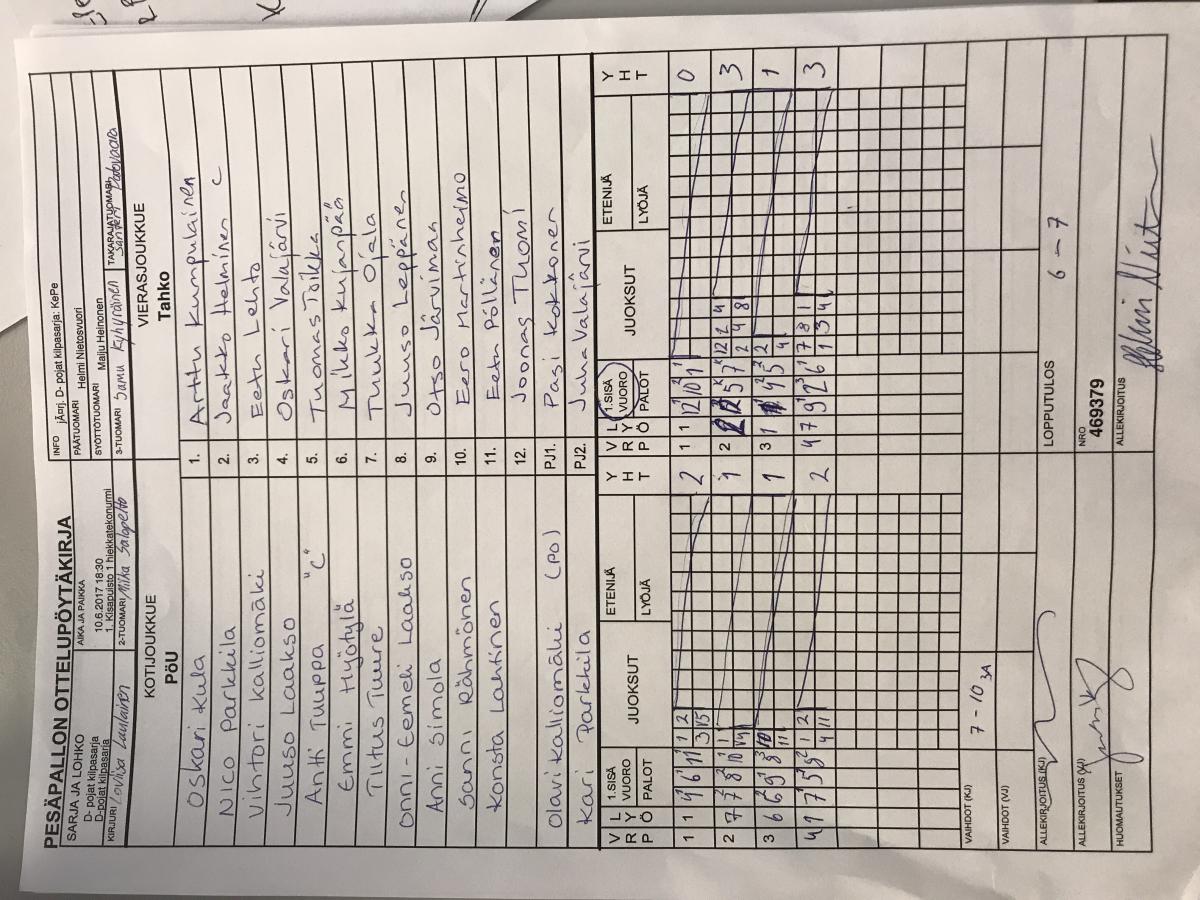 PESÄPALLON OTTELUPÖYTÄKIRJA
SARJA JA LOHKO
D- pojat kilpasarja
D-pojat kilpasarja
AIKA JA PAIKKA
10.6.2017 18:30
1. Kisapuisto 1 hiekkatekonurmi
INFO jÃ¤rj. D- pojat kilpasarja: KePe
PÄÄTUOMARI Helmi Nietosvuori
SYÖTTÖTUOMARI Maiju Heinonen
KIRJURI Loviisa Laulainen
2-TUOMARI Miika Salopelto
3-TUOMARI Samu Kyhyräinen
TAKARAJATUOMARI Santeri Palovaara
KOTIJOUKKUE
PöU
VIERASJOUKKUE
Tahko
Oskari Kula 1. Arttu Kumpulainen
Nico Parkkila 2. Jaakko Helminen C
Vihtori Kalliomäki 3. Eetu Lehto
Juuso Laakso 4. Oskari Valajärvi
Antti Tuuppa "C" 5. Tuomas Toikka
Emmi Hyötylä 6. Mikko Kujanpää
Tiitus Tuure 7. Tuukka Ojala
Onni-Eemeli Laakso 8. Juuso Leppänen
Anni Simola 9. Otso Järvimaa
Sanni Rähmönen 10. Eero Martinheimo
Konsta Lahtinen 11. Eetu Pöllänen
12. Joonas Tuomi
Olavi Kalliomäki (PO) PJ1. Pasi Kokkonen
Kari Parkkila PJ2. Juha Valajärvi
V R P L Y Ö 1.SISÄ VUORO PALOT JUOKSUT ETENIJÄ LYÖJÄ Y H T
V R P L Y Ö 1.SISÄ VUORO PALOT JUOKSUT ETENIJÄ LYÖJÄ Y H T
1 1 4 6 11 1 2 3 15 2
1 1 12 10 1 0
2 7 7 8 10 1 1
2 5 7 12 2 4 2 4 8 3
3 6 6 9 8 10 11 1
3 1 4 5 2 4 1
4 1 7 5 8 1 2 4 11 2
4 7 9 2 6 7 8 1 1 3 4 3
VAIHDOT (KJ) 7-10 3A
VAIHDOT (VJ)
ALLEKIRJOITUS (KJ)
LOPPUTULOS 6 - 7
ALLEKIRJOITUS (VJ)
NRO
469379
HUOMAUTUKSET
ALLEKIRJOITUS